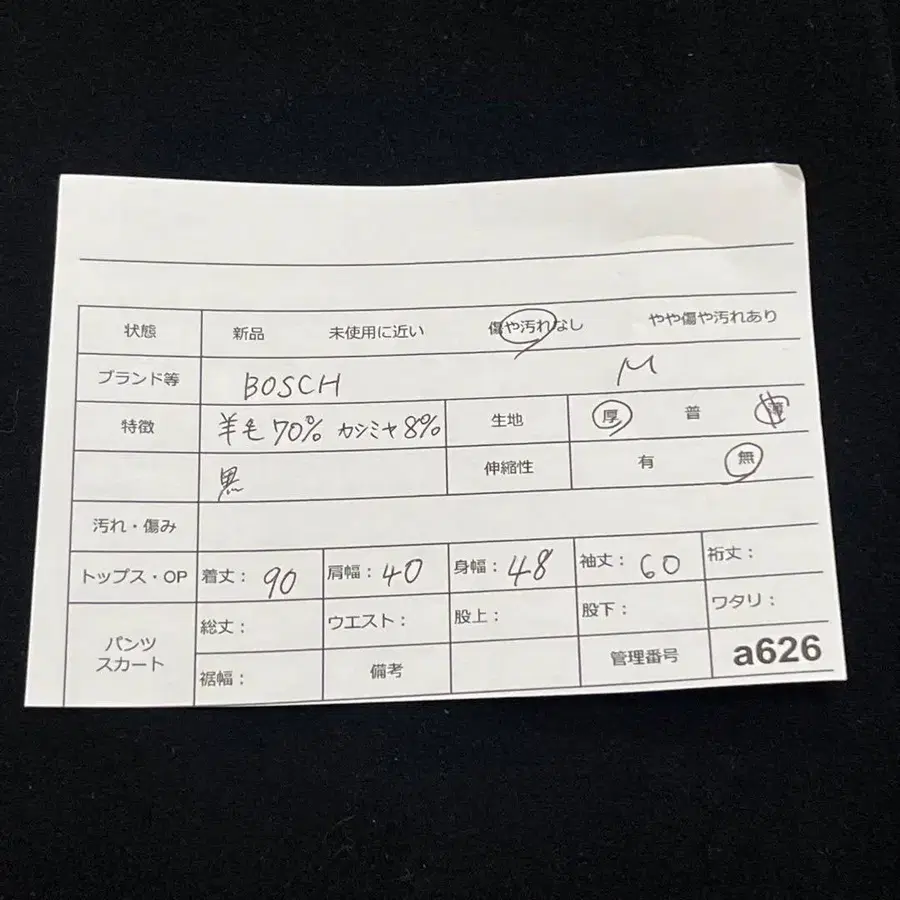 状態 新品 未使用に近い 傷や汚れなし やや傷や汚れあり
ブランド等 BOSCH M
特徴 羊毛70% カシミヤ8% 生地 厚 普 薄
黒 伸縮性 有 無
汚れ・傷み
トップス・OP 着丈: 90 肩幅: 40 身幅: 48 袖丈: 60 裄丈:
パンツ
スカート
総丈: ウエスト: 股上: 股下: ワタリ:
裾幅: 備考 管理番号 a626